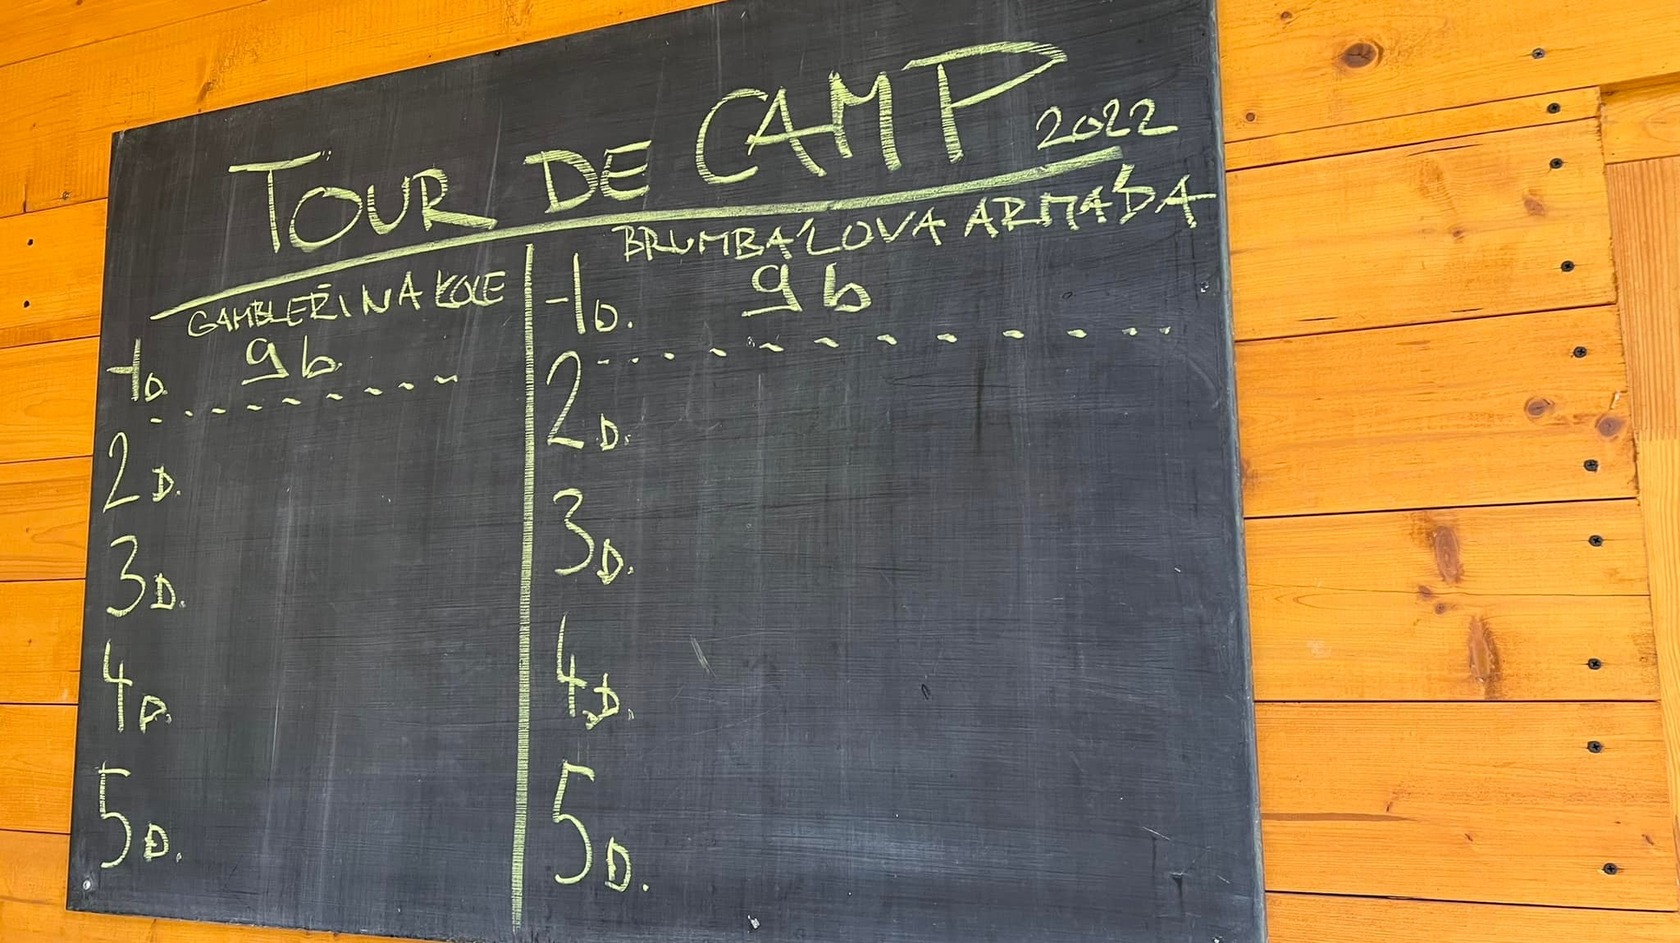 TOUR DE CAMP 2022
GAMBLEŘI NA KOLE
1D. 9b.
2D.
3D.
4D.
5D.
BRUMBÁLOVA ARMÁDA
1D. 9b
2D.
3D.
4D.
5D.